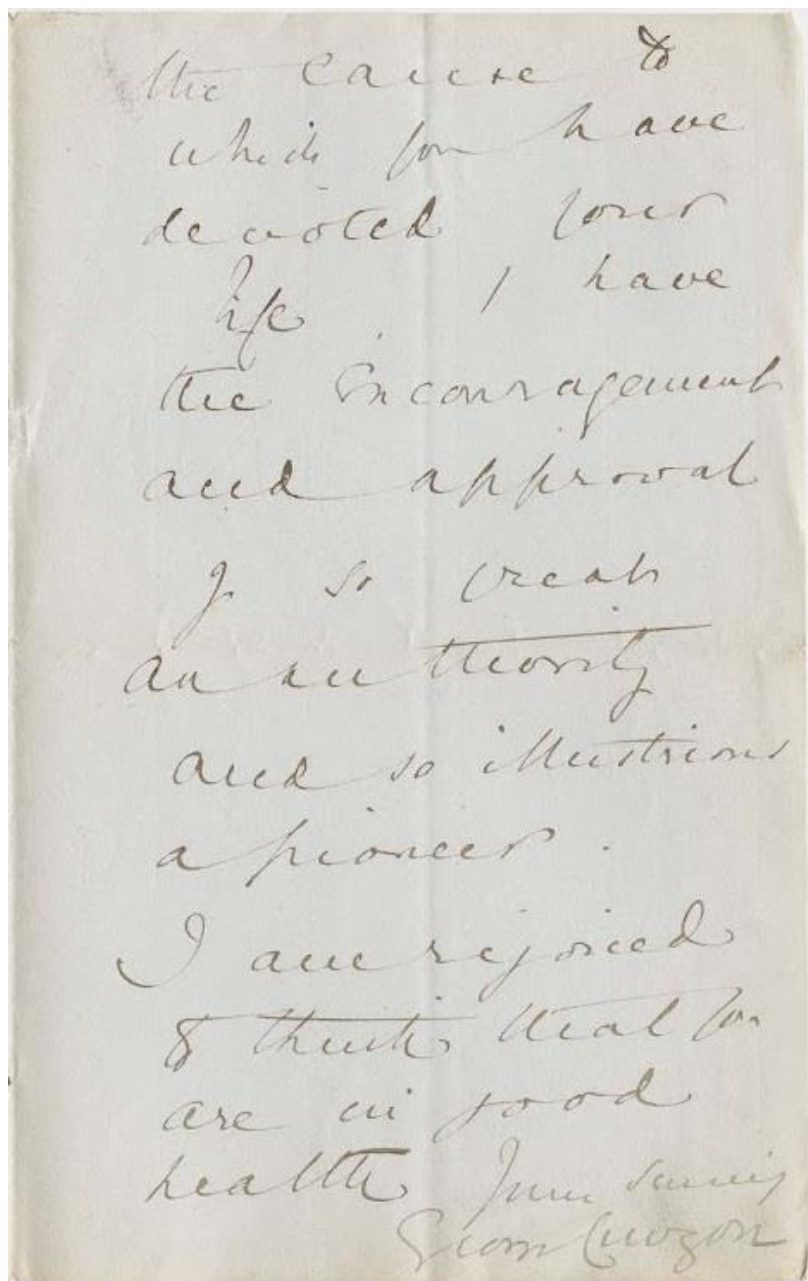 the cause to
which you have
devoted your
life. I have
the encouragement
and approval
of so great
an authority
and so illustrious
a pioneer.
I am rejoiced
to think that you
are in good
health Yours sincerely
George Curzon